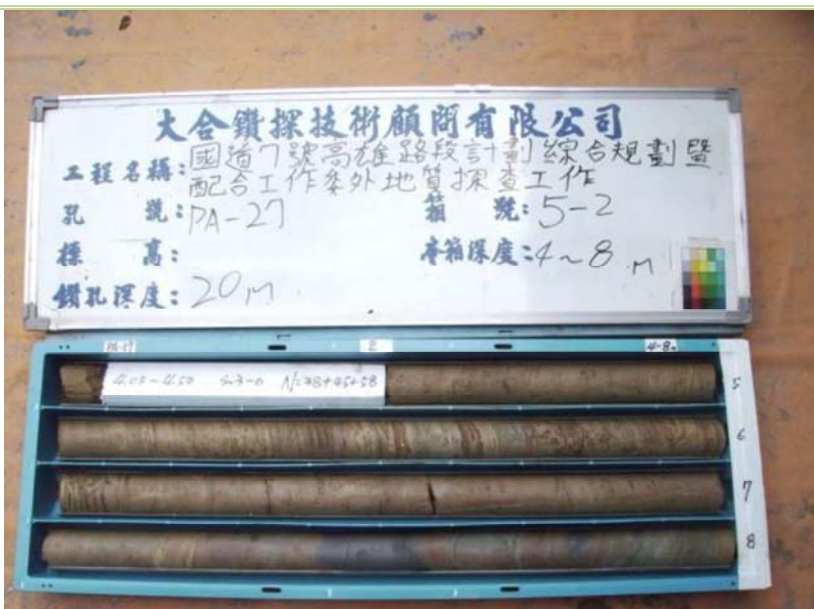 大合鑽探技術顧問有限公司
工程名稱：國道7號高雄路段計劃綜合規劃暨
配合工作委外地質探查工作
孔 號：PA-27 箱 號：5-2
標 高： 本箱深度：4~8 M
鑽孔深度：20M
PA-27 2 4-8m
4.05-4.50 S-3-0 N=28+45+58
5
6
7
8